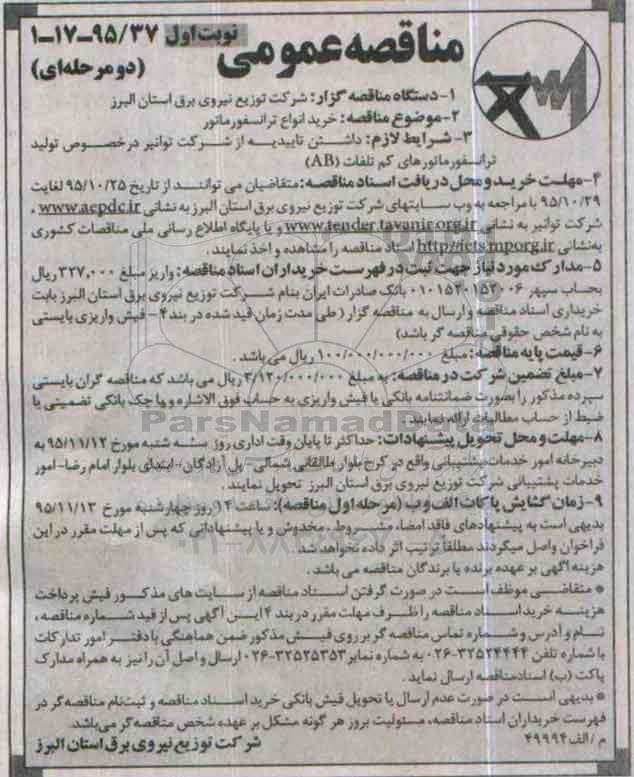 مناقصه عمومی
نوبت اول ۹۵/۳۷-۱۷-۱
(دو مرحله‌ای)
۱-دستگاه مناقصه گزار: شرکت توزیع نیروی برق استان البرز
۲-موضوع مناقصه: خرید انواع ترانسفورماتور
۳-شرایط لازم: داشتن تاییدیه از شرکت توانیر درخصوص تولید
ترانسفورماتورهای کم تلفات (AB)
۴-مهلت خرید و محل دریافت اسناد مناقصه: متقاضیان می توانند از تاریخ ۹۵/۱۰/۲۵ لغایت
۹۵/۱۰/۲۹ با مراجعه به وب سایتهای شرکت توزیع نیروی برق استان البرز به نشانی www.aepdc.ir ،
شرکت توانیر به نشانی www.tender.tavanir.org.ir و یا پایگاه اطلاع رسانی ملی مناقصات کشوری
به‌نشانی http://iets.mporg.ir اسناد مناقصه را مشاهده و اخذ نمایند.
۵-مدارک مورد نیاز جهت ثبت در فهرست خریداران اسناد مناقصه: واریز مبلغ ۳۲۷,۰۰۰ ریال
بحساب سپهر ۰۱۰۱۵۲۰۱۵۲۰۰۶ بانک صادرات ایران بنام شرکت توزیع نیروی برق استان البرز بابت
خریداری اسناد مناقصه و ارسال به مناقصه گزار (طی مدت زمان قید شده در بند ۴ - فیش واریزی بایستی
به نام شخص حقوقی مناقصه گر باشد)
۶-قیمت پایه مناقصه: مبلغ ۱۰۰/۰۰۰/۰۰۰/۰۰۰ ریال می باشد.
۷-مبلغ تضمین شرکت در مناقصه: به مبلغ ۳/۱۲۰/۰۰۰/۰۰۰ ریال می باشد که مناقصه گران بایستی
سپرده مذکور را بصورت ضمانتنامه بانکی یا فیش واریزی به حساب فوق الاشاره و یا چک بانکی تضمینی یا
ضبط از حساب مطالبات ارائه نمایند.
۸-مهلت و محل تحویل پیشنهادات: حداکثر تا پایان وقت اداری روز سه شنبه مورخ ۹۵/۱۱/۱۲ به
دبیرخانه امور خدمات پشتیبانی واقع در کرج بلوار طالقانی شمالی- پل آزادگان- ابتدای بلوار امام رضا- امور
خدمات پشتیبانی شرکت توزیع نیروی برق استان البرز تحویل نمایند.
۹-زمان گشایش پاکات الف و ب (مرحله اول مناقصه): ساعت ۱۴ روز چهارشنبه مورخ ۹۵/۱۱/۱۳
بدیهی است به پیشنهادهای فاقد امضاء، مشروط، مخدوش و یا پیشنهاداتی که پس از مهلت مقرر در این
فراخوان واصل میگردند مطلقا ترتیب اثر داده نخواهد شد.
هزینه آگهی بر عهده برنده یا برندگان مناقصه می باشد.
* متقاضی موظف است در صورت گرفتن اسناد مناقصه از سایت های مذکور فیش پرداخت
هزینه خرید اسناد مناقصه را ظرف مهلت مقرر در بند ۴ این آگهی پس از قید شماره مناقصه،
نام و آدرس و شماره تماس مناقصه گر بر روی فیش مذکور ضمن هماهنگی با دفتر امور تدارکات
با شماره تلفن ۳۲۵۲۴۴۴۴-۰۲۶ به شماره نمابر ۳۲۵۲۵۳۵۳-۰۲۶ ارسال و اصل آن را نیز به همراه مدارک
پاکت (ب) اسناد مناقصه ارسال نماید.
* بدیهی است در صورت عدم ارسال یا تحویل فیش بانکی خرید اسناد مناقصه و ثبت‌نام مناقصه‌گر در
فهرست خریداران اسناد مناقصه، مسئولیت بروز هر گونه مشکل بر عهده شخص مناقصه‌گر می‌باشد.
م / الف ۴۹۹۹۴
شرکت توزیع نیروی برق استان البرز
ParsNamadData